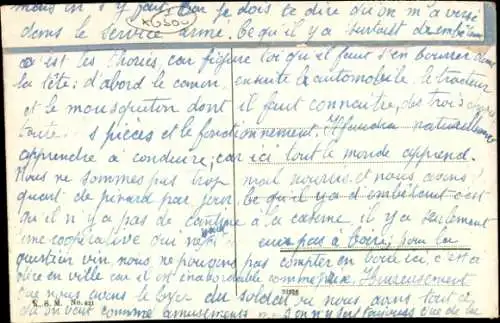 mais on s'y fait. Car je dois te dire qu'on m'a versé
dans le service armé. Ce qu'il y a surtout
c'est les théories, car figure toi qu'il faut s'en bourrer dans
la tête: d'abord le canon, ensuite l'automobile, le tracteur
et le mousqueton dont il faut connaître, des trois
toutes les pièces et le fonctionnement. Il faudra naturellement
apprendre à conduire, car ici tout le monde apprend.
Nous ne sommes pas trop mal nourris et nous avons
quart de pinard par jour. Ce qu'il y a d'embêtant c'est
qu'il n'y a pas de cantine à la caserne, il y a seulement
une coopérative qui pas à boire; pour la
question vin, nous ne pouvons pas compter en boire ici, c'est à
dire en ville car il est inabordable comme prix. Heureusement
que nous avons le foyer du soldat où nous avons tout ce
qu'on veut comme amusements